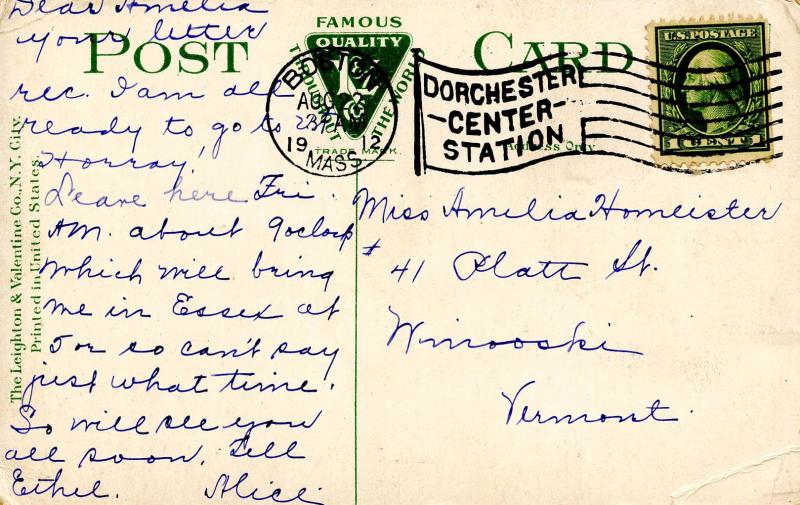 Dear Amelia
your letter
rec. I am all
ready to go to
Horray!
Leave here Fri.
AM. about 9oclock
which will bring
me in Essex at
5 or so can't say
just what time.
So will see you
all soon. Tell
Ethel. Alice
POST CARD
FAMOUS
QUALITY
THROUGHOUT THE WORLD
TRADE MARK.
BOSTON
AUG 28
19 12
MASS
DORCHESTER
-CENTER-
STATION
Address Only
U.S. POSTAGE
1 CENT 1
Miss Amelia Homeister
# 41 Platt St.
Winooski
Vermont.
The Leighton & Valentine Co., N.Y. City.
Printed in United States.